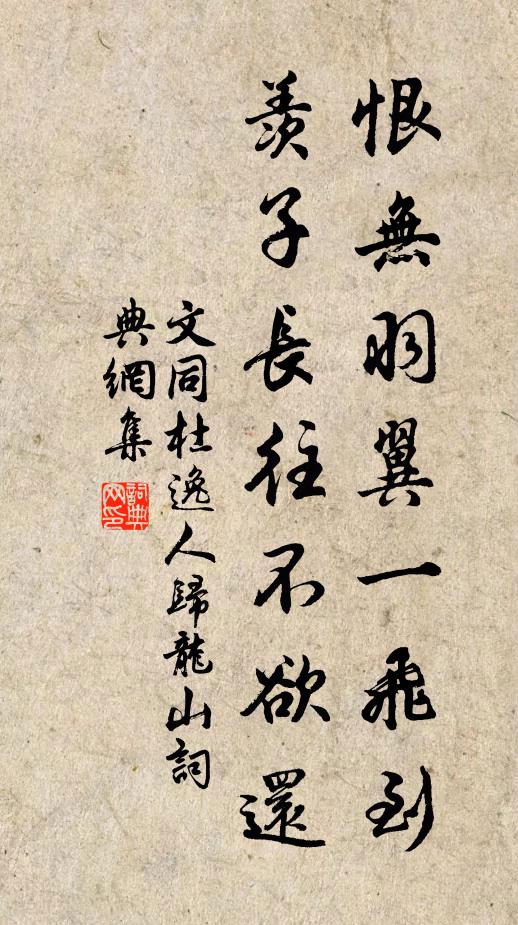 恨無羽翼一飛到
羨子長往不欲還
文同杜逸人歸龍山詞
典網集
詞典網印